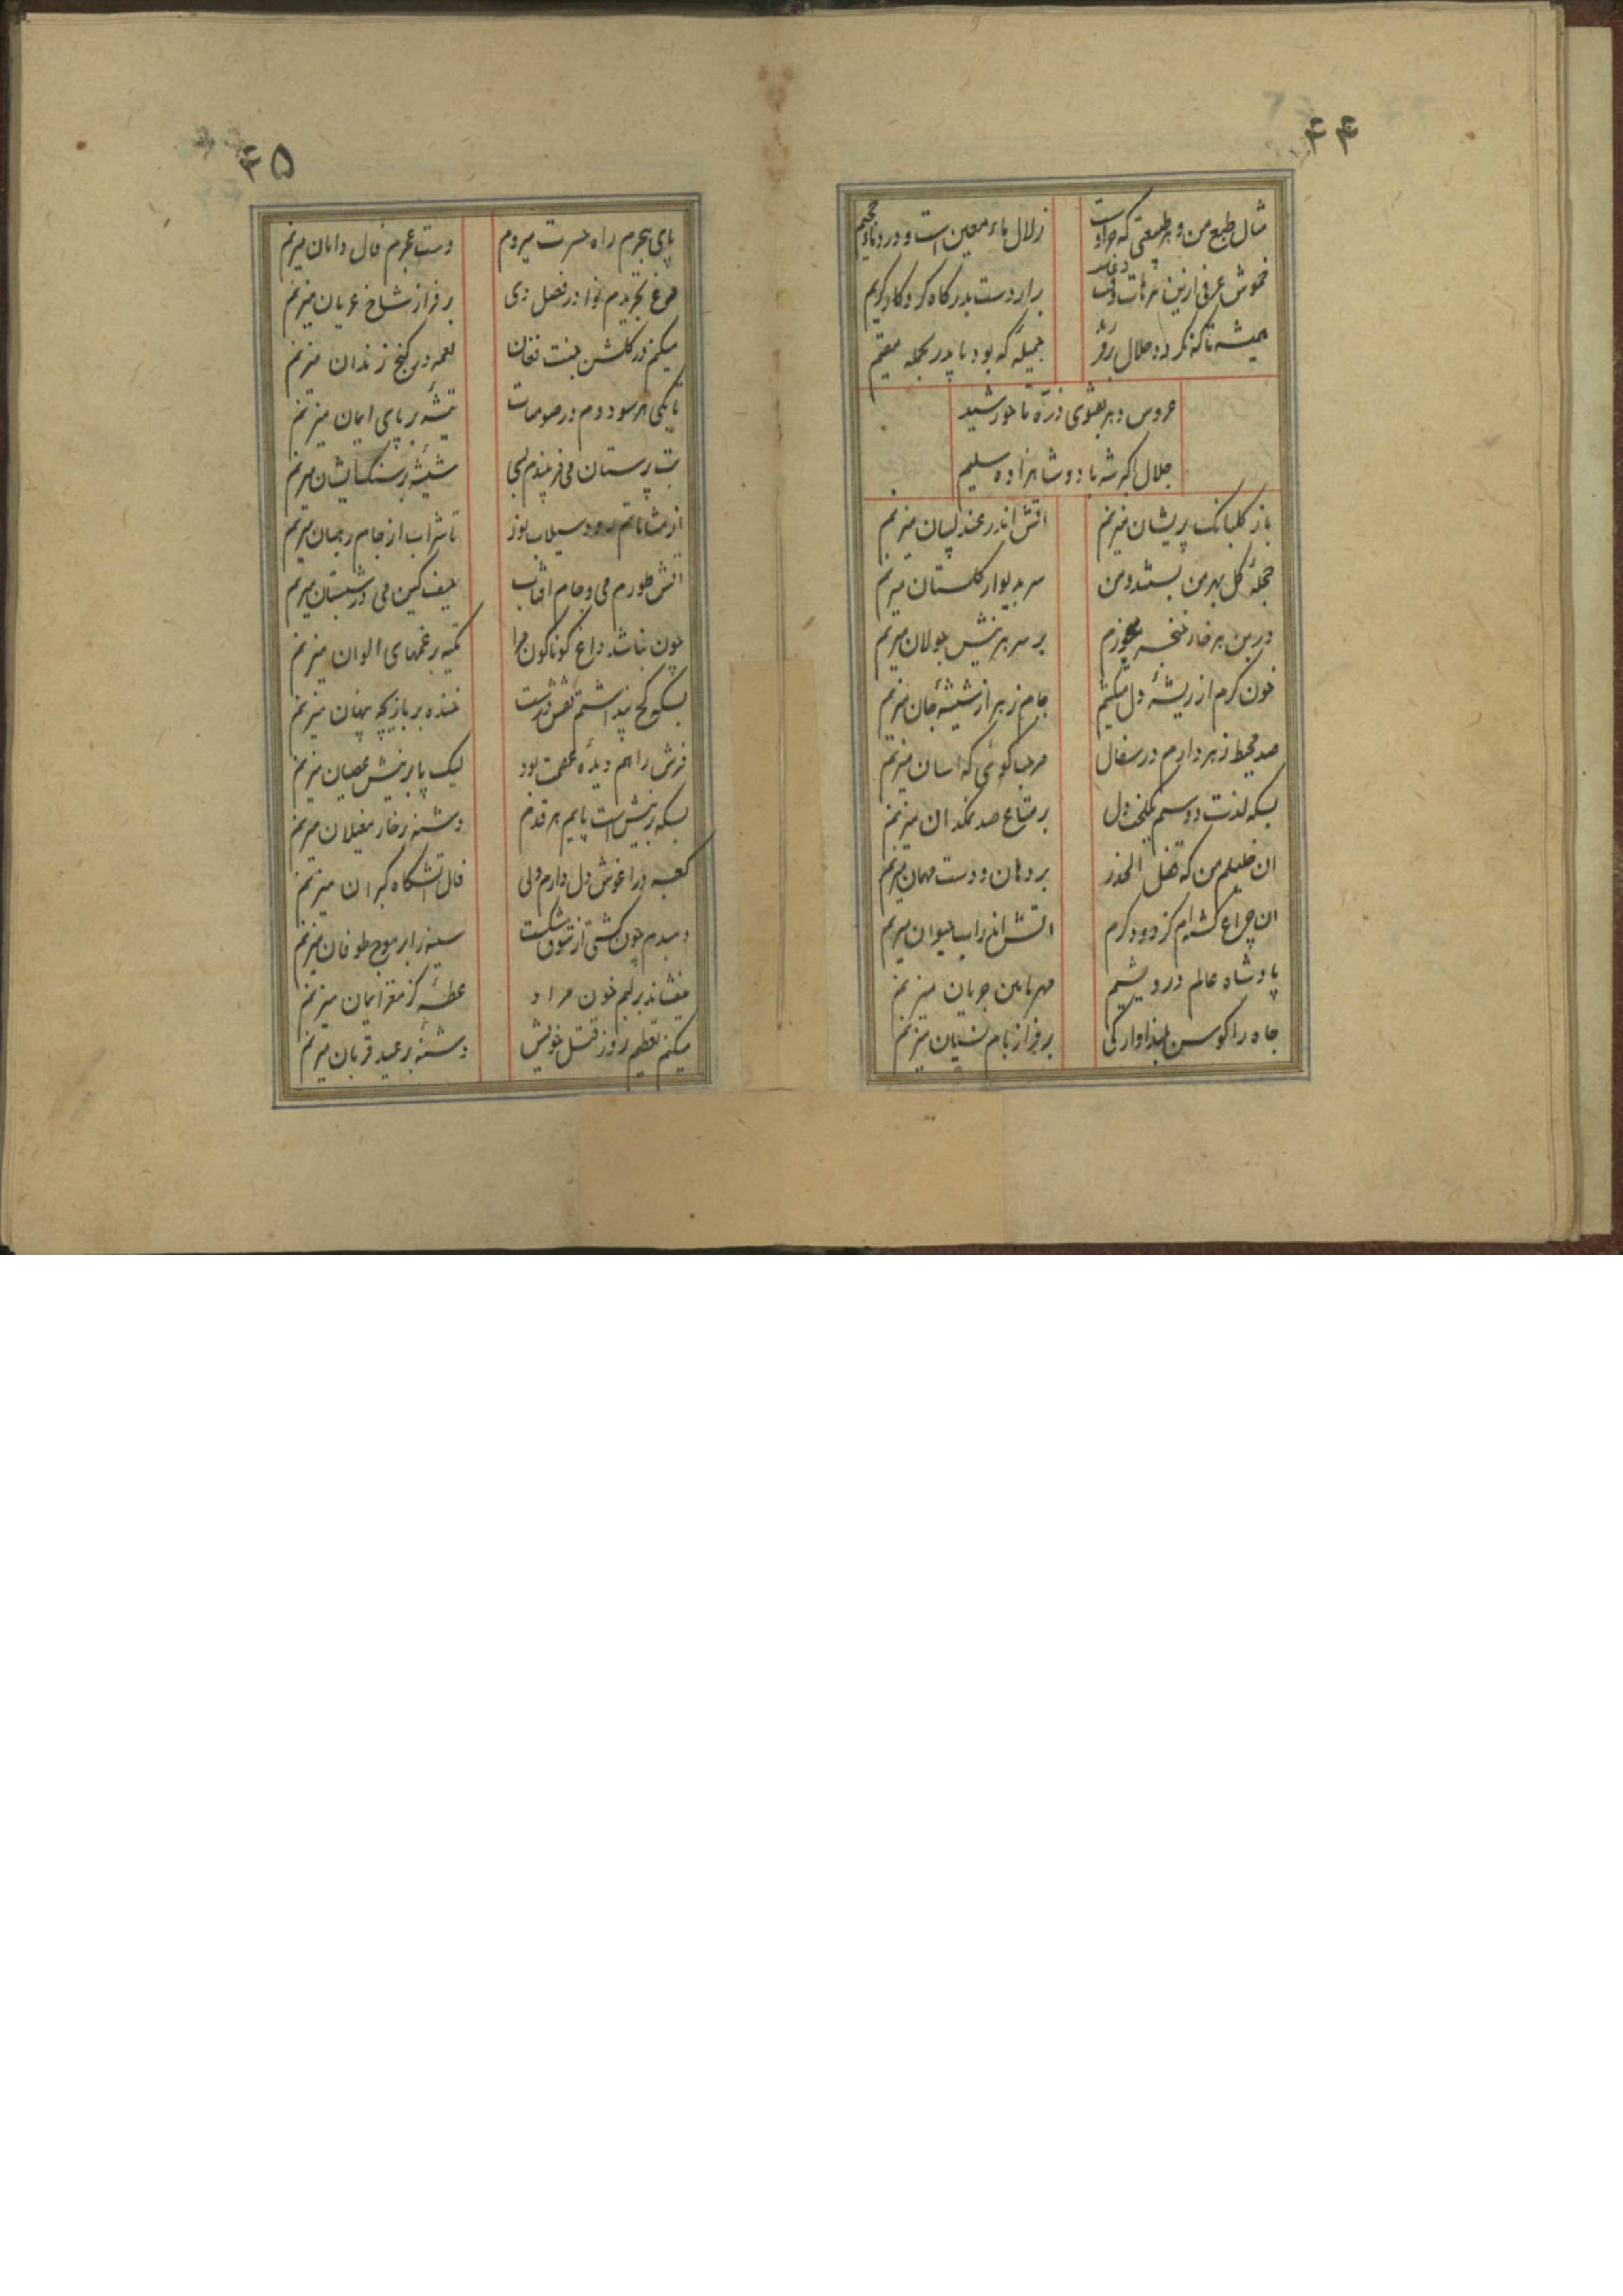 ۴۴
مثال طبع من و هر طبیعتی که جزاوست
زلال ماء معین است و درد ماء حمیم
خموش عرفی ازین ترهات وقت دعاست
برار دست بدرگاه کردکار کریم
همیشه تا که نگردد حلال بر شوهر
جمیله که بود با پدر بحجله مقیم
عروس دهر بفتوی ذره تا خورشید
حلال اکبر شه باد و شاهزاده سلیم
باز گلبانک پریشان میزنم
اتش اندر عندلیبان میزنم
حجلهٔ گل بهر من بستند و من
سر بدیوار گلستان میزنم
در بن هر خار خنجر میخورم
بر سر هر نیش جولان میزنم
خون گرم از ریشهٔ دل میکشم
جام زهر از شیشهٔ جان میزنم
صد محیط زهر دارم در سفال
مرحبا گوئی که اسان میزنم
بسکه لذت دوستم لخت دل
بر متاع صد نمکدان میزنم
ان خلیلم من که قفل الحذر
بر دهان و دست مهمان میزنم
ان چراغ کشته‌ام کز دود گرم
اتش اندر اب حیوان میزنم
پادشاه عالم درویشیم
مهر با من جوبان میزنم
جاه را کوس بلند اوازکی
بر فراز بام نسیان میزنم
۴۵
پای هجرم راه حسرت میروم
دست عجزم فال دامان میزنم
مرغ تجریدم نوا در فصل دی
بر فراز شاخ عریان میزنم
میکنم در گلشن جنت فغان
نغمه در کنج زندان میزنم
تا یکی هر سو دوم در صومعات
تیشه بر پای ایمان میزنم
بت پرستان می فریبندم بسی
شیشه بر سنگ ایشان میزنم
از مشاماتم رود سیلاب نور
تا شراب از جام رهبان میزنم
اتش طورم می و جام افتاب
حیف کین می در شبستان میزنم
چون نباشد داغ گوناگون مرا
تکیه بر غمهای الوان میزنم
بسکه کج پنداشتم نقش درست
خنده بر بازیچه پنهان میزنم
فرش راهم دیدهٔ عصمت بود
لیک پا بر نیش عصیان میزنم
بسکه بر نیش است پایم هر قدم
دشنه بر خار مغیلان میزنم
کعبه در اغوش دل دارم ولی
فال اتشگاه گبران میزنم
دمبدم چون کشتی از شوق شکست
سینه را بر موج طوفان میزنم
میفشاند بر لبم خون مراد
عطسه کز مغز ایمان میزنم
میکنم تعظیم روز قتل خویش
دشنه بر عید قربان میزنم